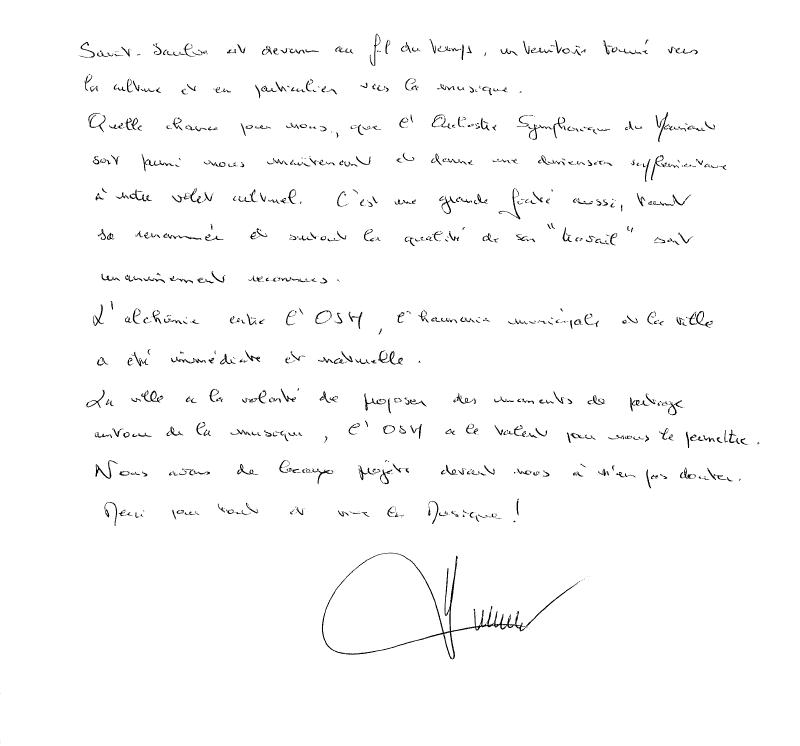 Saint-Saulve est devenu au fil du temps, un territoire tourné vers
la culture et en particulier vers la musique.
Quelle chance pour nous, que l'Orchestre Symphonique du Hainaut
soit parmi nous maintenant et donne une dimension supplémentaire
à notre volet culturel. C'est une grande fierté aussi, tant
sa renommée et surtout la qualité de son "travail" sont
unanimement reconnues.
L'alchimie entre l'OSH, l'harmonie municipale et la ville
a été immédiate et naturelle.
La ville a la volonté de proposer des moments de partage
autour de la musique, l'OSH a le talent pour nous le permettre.
Nous avons de beaux projets devant nous à n'en pas douter.
Merci pour tout et vive la Musique !